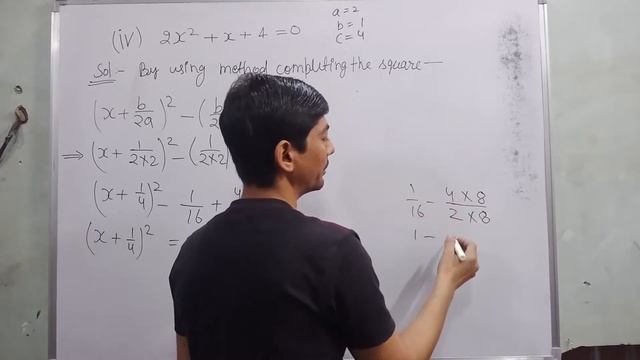 (iv) 2x² + x + 4 = 0
a = 2
b = 1
c = 4
Sol:- By using method completing the square —
(x + b/2a)² - (b/2
⇒ (x + 1/2×2)² - (1/2×2)
(x + 1/4)² - 1/16 + 4
(x + 1/4)² =
1/16 - 4×8/2×8
1 -